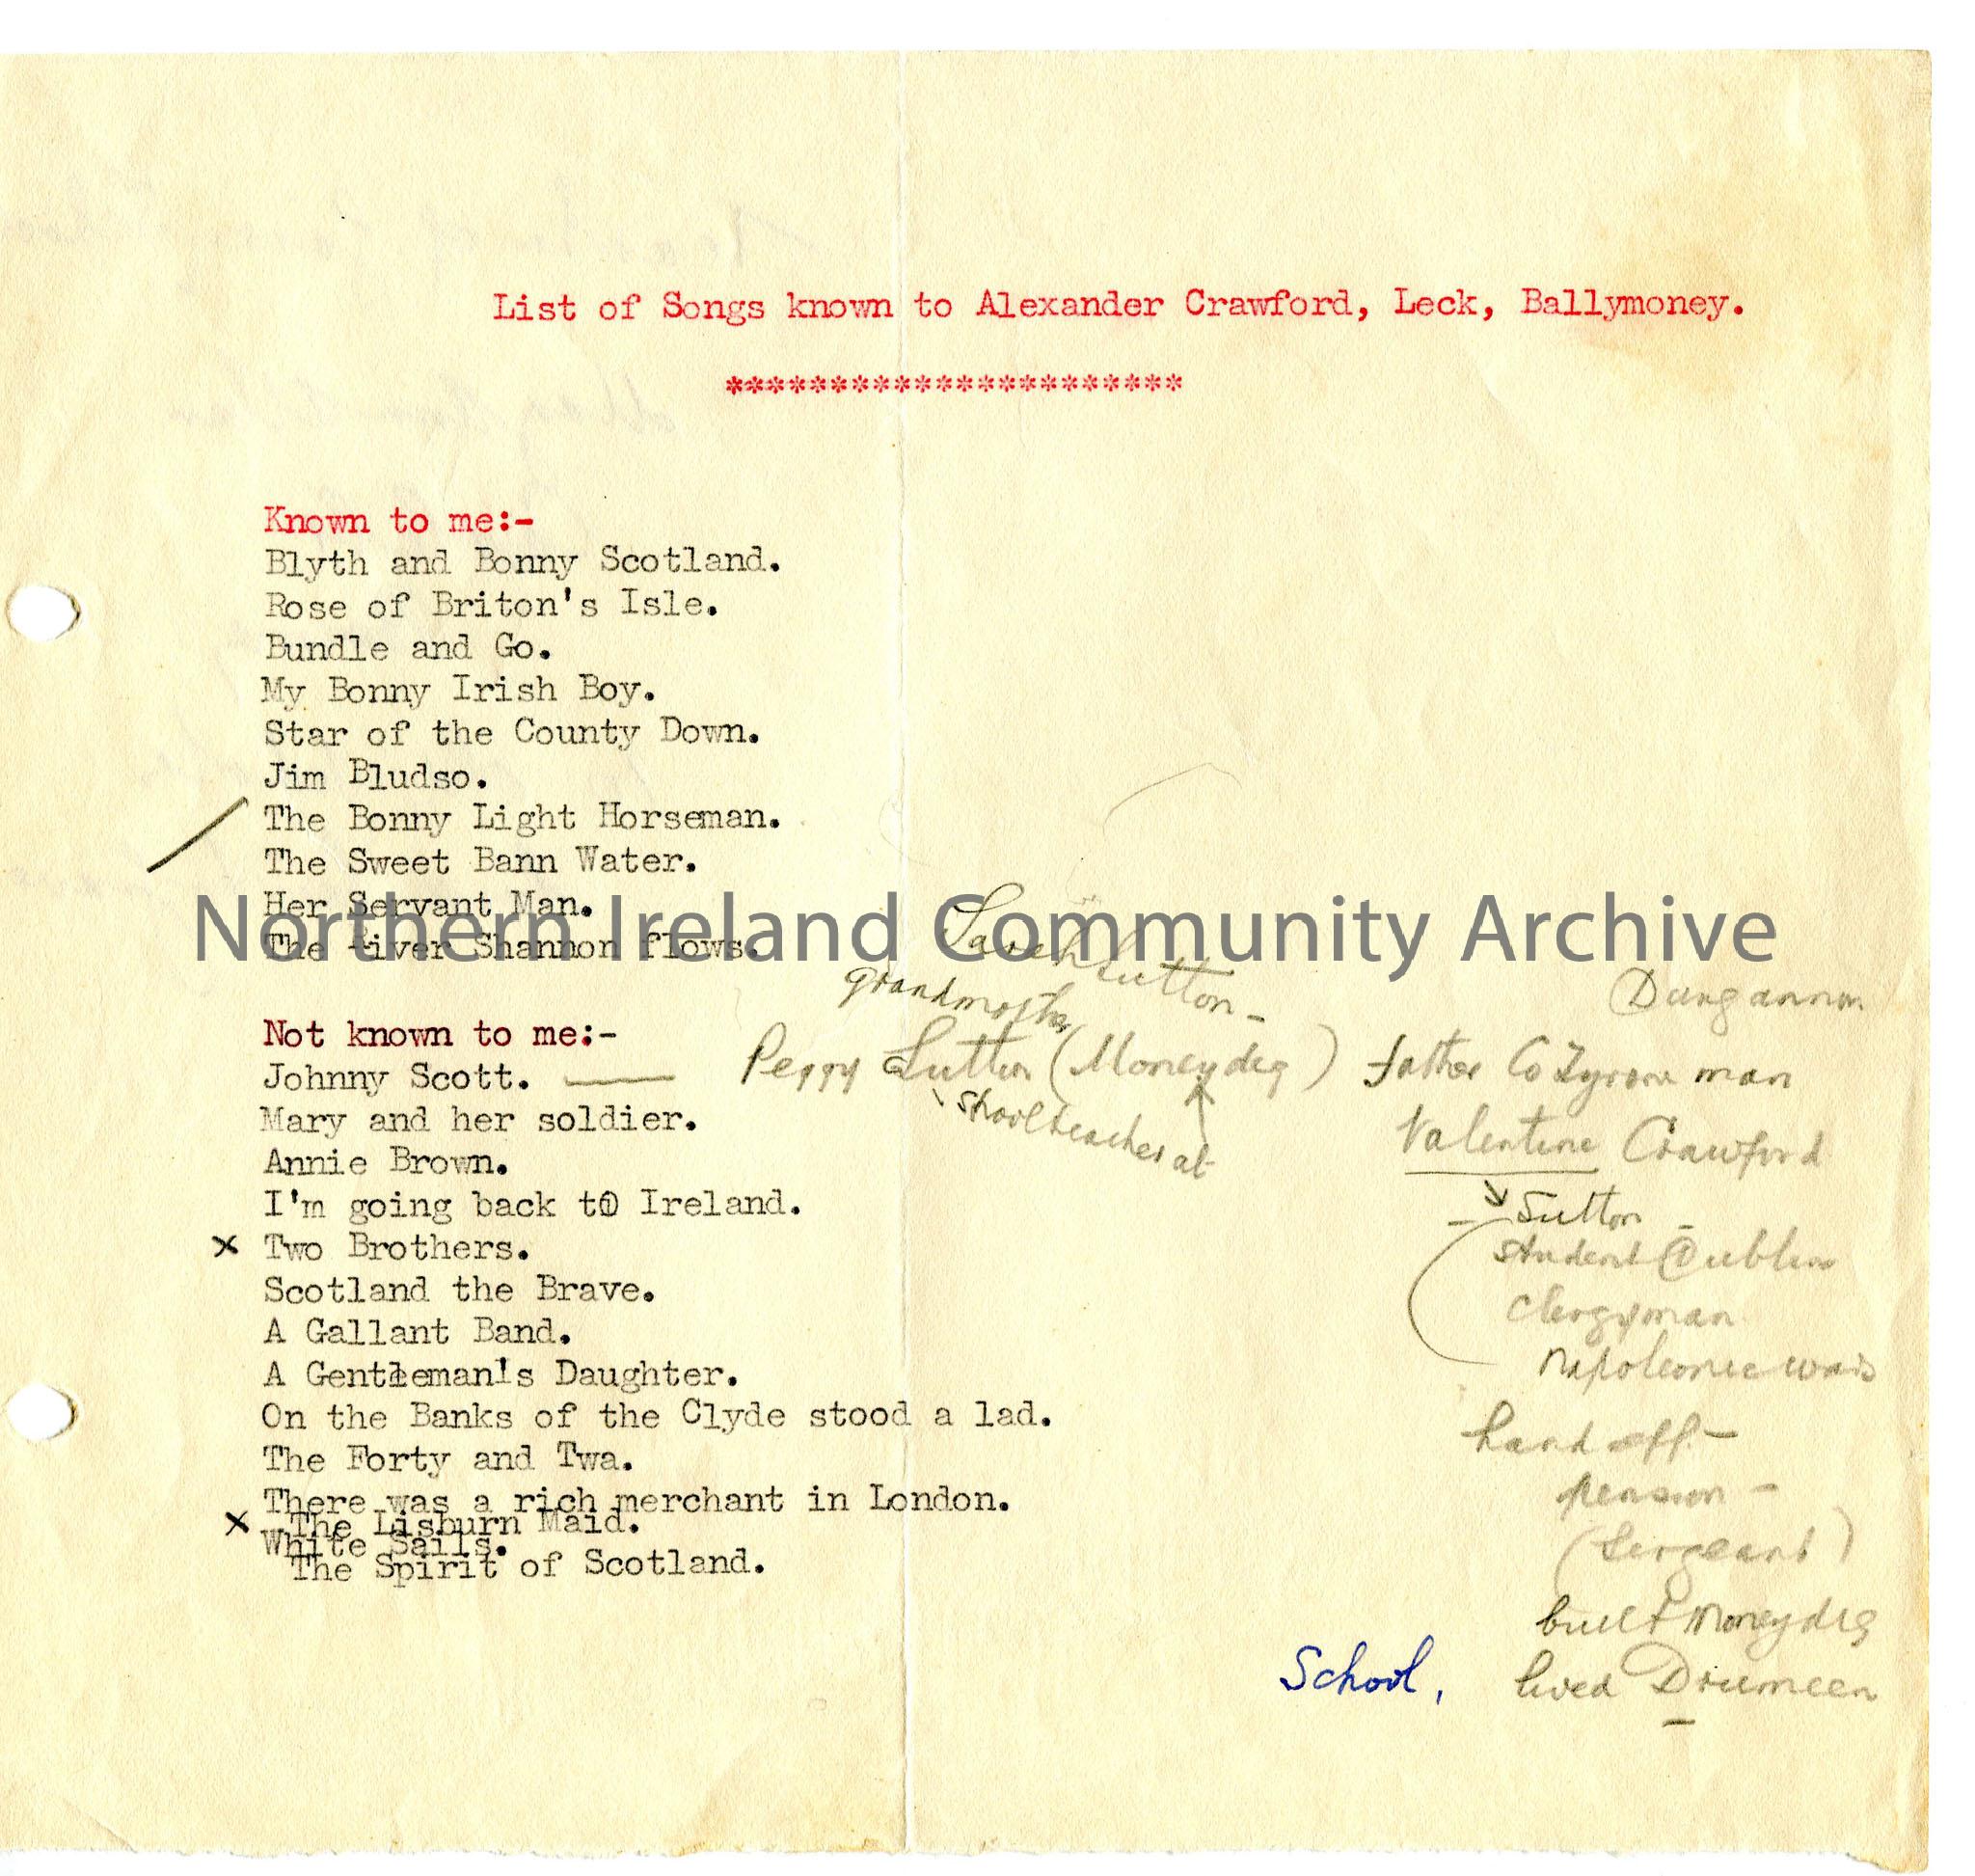 List of Songs known to Alexander Crawford, Leck, Ballymoney.
**********************
Known to me:-
Blyth and Bonny Scotland.
Rose of Briton's Isle.
Bundle and Go.
My Bonny Irish Boy.
Star of the County Down.
Jim Bludso.
The Bonny Light Horseman.
The Sweet Bann Water.
Her Servant Man.
The river Shannon flows.
Northern Ireland Community Archive
Not known to me:-
Johnny Scott.
Mary and her soldier.
Annie Brown.
I'm going back to Ireland.
x Two Brothers.
Scotland the Brave.
A Gallant Band.
A Gentleman's Daughter.
On the Banks of the Clyde stood a lad.
The Forty and Twa.
There was a rich merchant in London.
x The Lisburn Maid.
White Sails.
The Spirit of Scotland.
Sarah Sutton -
grandmother
Peggy Sutton (Moneydig)
schoolteacher at
Dungannon
father Co Tyrone man
Valentine Crawford
Sutton -
student Dublin
clergyman
Napoleonic wars
hand off -
pension -
(Sergeant)
built Moneydig
School, lived Drumeen